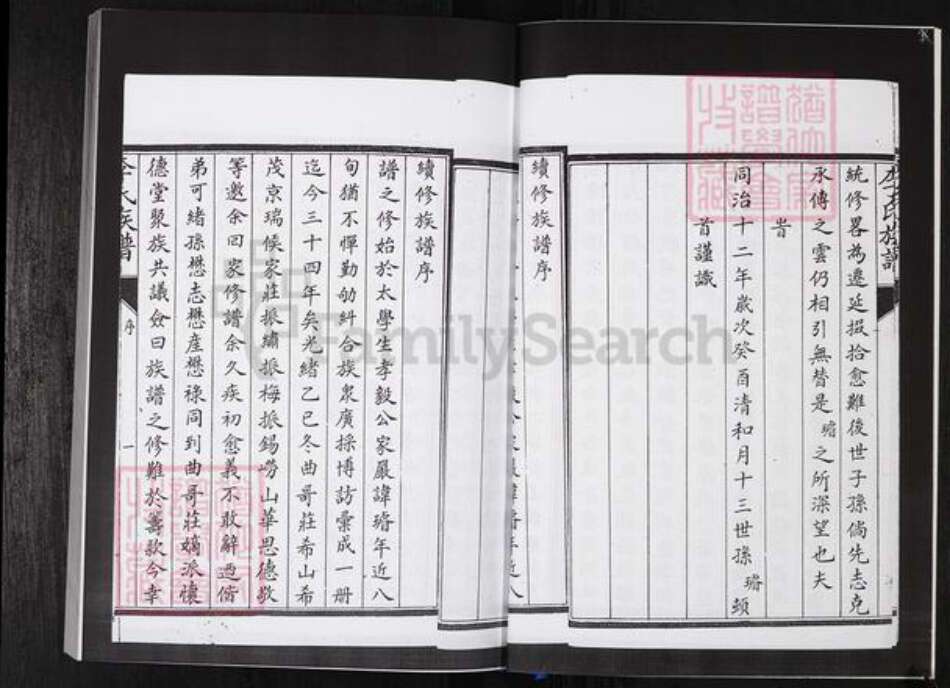 李氏族譜
統修畧為遷延掇拾愈難後世子孫倘先志克
承傳之雲仍相引無替是瑭之所深望也夫
旹
同治十二年歲次癸酉清和月十三世孫瑭頓
首謹識
續修族譜序
續修族譜序
譜之修始於太學生孝毅公家嚴諱瑭年近八
旬猶不憚勤劬糾合族衆廣採博訪彙成一册
迄今三十四年矣光緒乙巳冬曲哥莊希山希
茂京瑞候家莊振繡振梅振錫嶗山華思德敬
等邀余曰家修譜余久疾初愈義不敢辭迺偕
弟可緒孫懋志懋產懋祿同到曲哥莊嫡派懷
德堂聚族共議僉曰族譜之修難於籌欵今幸
李氏族譜
序
一
FamilySearch